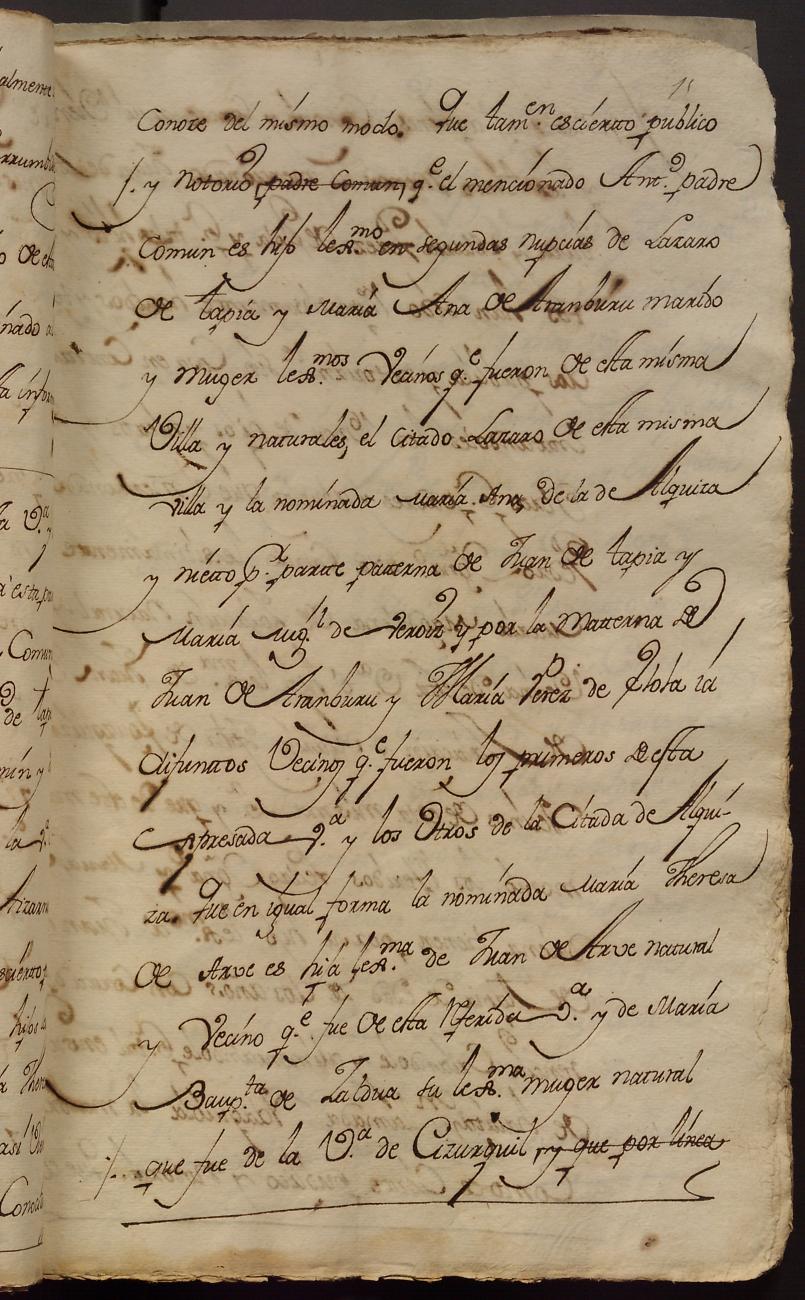 11
Conoce del mismo modo. Que tam.en es cierto publico
/. y notorio, padre Comun, q.e el mencionado Ant.o padre
Comun es hijo lex.mo en segundas nupcias de Lazaro
de tapia y Maria Ana de Aranburu marido
y muger lex.mos Vecinos q.e fueron de esta misma
Villa y naturales, el Citado Lazaro de esta misma
villa y la nominada Maria Ana, de la de Alquiza
y nieto p.r parte paterna de Juan de tapia y
Maria Mig.l de Veroiz y por la Materna de
Juan de Aranburu y Maria Perez de ya
difuntos Vecinos q.e fueron los primeros de esta
expresada V.a y los Otros de la Citada de Alqui-
za. Que en igual forma la nominada Maria Theresa
de Arve es hija lex.ma de Juan de Arve natural
y Vecino q.e fue de esta referida V.a y de Maria
Baup.ta de Zaldua su lex.ma muger natural
/. que fue de la V.a de Cizurquil, y que por linea